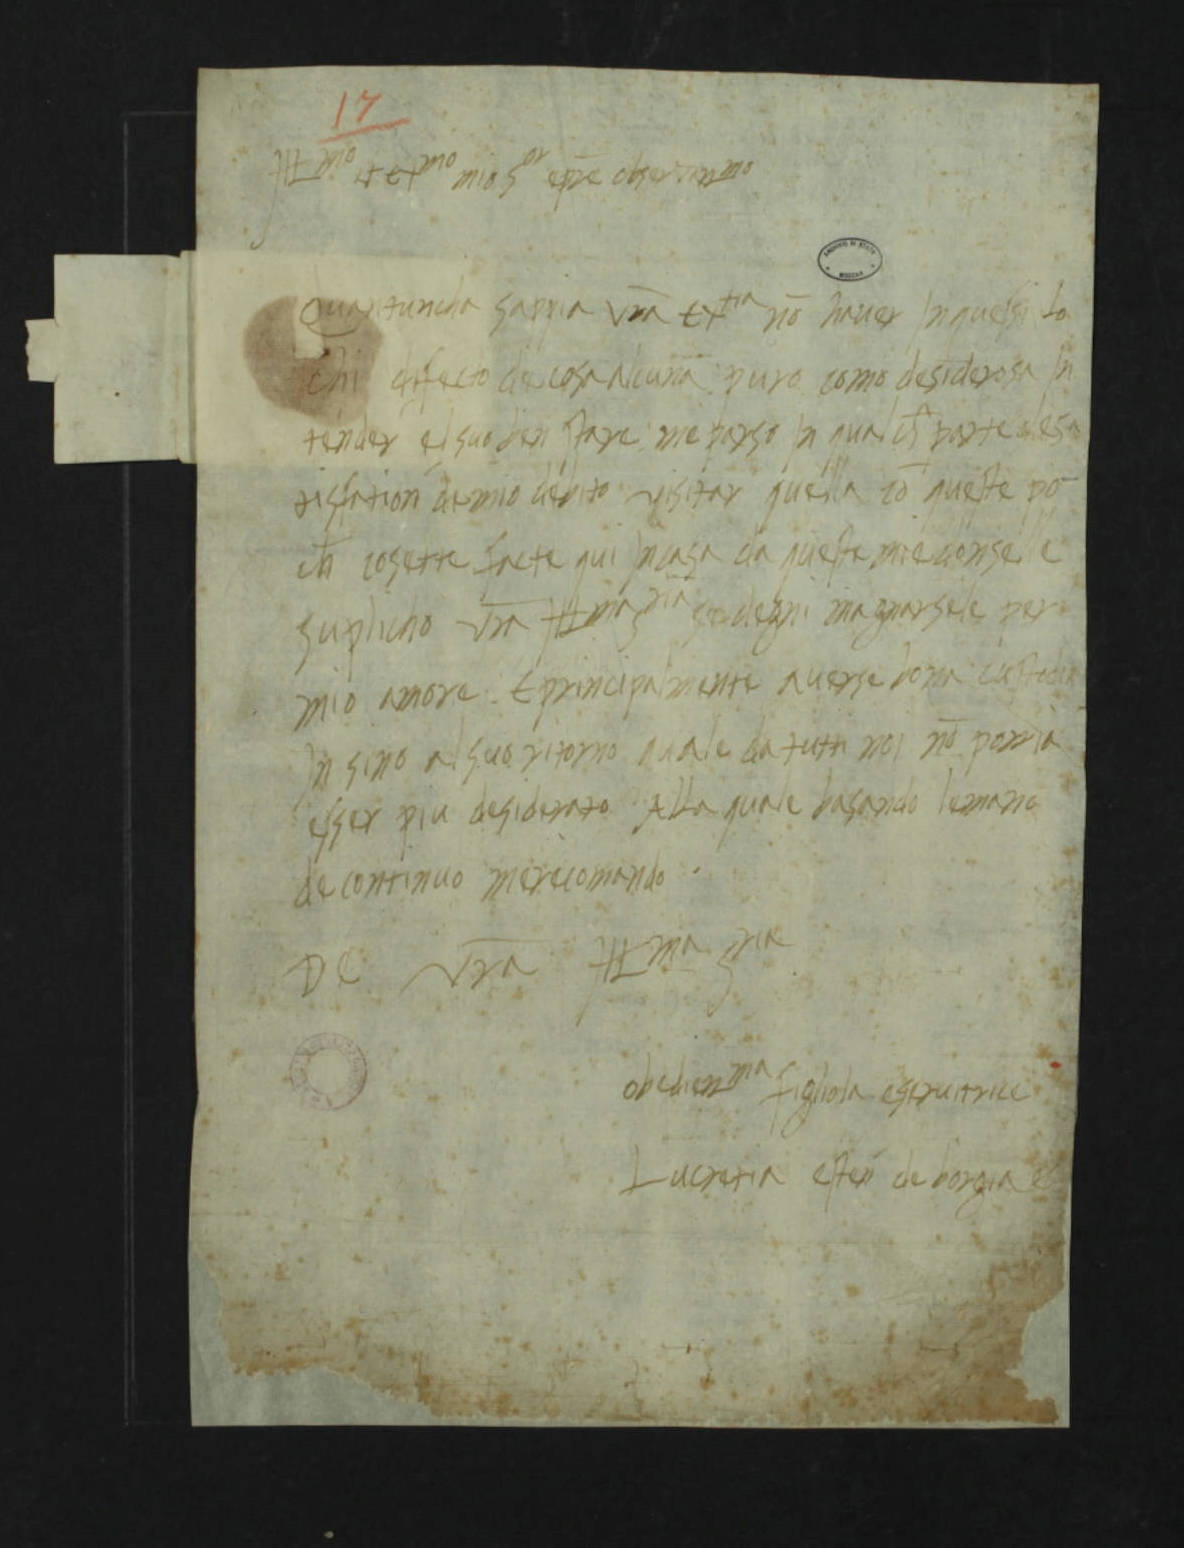 17
Ill^mo et Ex^mo mio S^or e prē observan^mo
ARCHIVIO DI STATO
MODENA
Quantuncha sappia vrā Ex^tia nō haver in questi lo
chi difecto de cosa alcuna puro como desiderosa in
tender el suo ben stare me parso in qualch parte de sa
tisfation del mio debito visitar quella cō queste po
ch cosette facte qui in casa da queste mie donzelle
suplicho vrā Ill^ma S^ria se degni magnarsele per
mio amore. E principalmente averse bona custodia
In sino al suo ritorno quale da tutti noi nō porria
esser piu desiderato Alla quale basando le mano
de continuo me recomando.
De vrā Ill^ma S^ria
obedien^ma figliola e servitrice
Lucretia esteñ de borgia